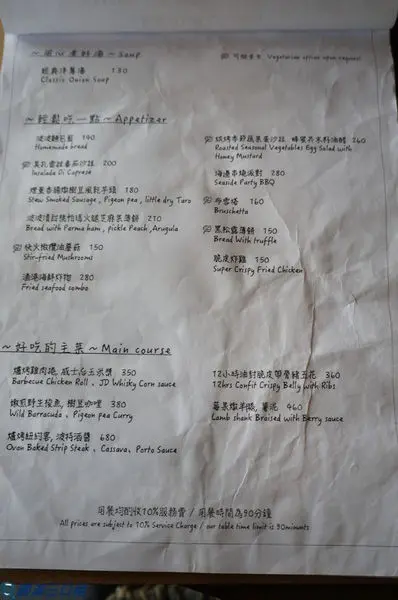 ~用心煮好湯~Soup
可做素食 Vegetarian option upon request
經典洋蔥湯 130
Classic Onion Soup
~輕鬆吃一點~Appetizer
波波麵包籃 190
Homemade bread
200
Insalada Di Caprese
煙熏香腸燉樹豆風乾芋頭 180
Stew Smoked Sausage , Pigeon pea , little dry Taro
210
Bread with Parma ham , pickle Peach , Arugula
快火橄欖油蘑菇 150
Stir-fried Mushrooms
港海鮮炸物 280
Fried seafood combo
炭烤季節蔬果蛋沙拉, 蜂蜜芥末籽油醋 260
Roasted Seasonal Vegetables Egg Salad with
Honey Mustard
海邊串燒派對 280
Seaside Party BBQ
布雪塔 160
Bruschetta
黑松露薄餅 150
Bread With truffle
脆皮炸雞 150
Super Crispy Fried Chicken
~好吃的主菜~Main course
爐烤雞肉捲, 威士忌玉米漿 350
Barbecue Chicken Roll , JD Whisky Corn sauce
嫩煎野生梭魚, 樹豆咖哩 380
Wild Barracuda , Pigeon pea Curry
爐烤紐約客, 波特酒醬 680
Oven Baked Strip Steak , Cassava, Porto Sauce
12小時油封脆皮帶骨豬五花 360
12hrs Confit Crispy Belly With Ribs
莓果燉羊膝, 薯泥 460
Lamb shank Braised with Berry sauce
用餐均酌收10%服務費 / 用餐時間為90分鐘
All prices are subject to 10% Service Charge / our table time limit is 90minunts